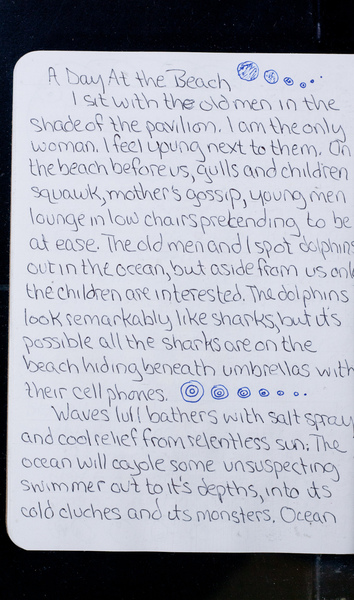 A Day At the Beach
I sit with the old men in the
shade of the pavilion. I am the only
woman. I feel young next to them. On
the beach before us, gulls and children
squawk, mother's gossip, young men
lounge in low chairs pretending to be
at ease. The old men and I spot dolphins
out in the ocean, but aside from us only
the children are interested. The dolphins
look remarkably like sharks, but it's
possible all the sharks are on the
beach hiding beneath umbrellas with
their cell phones.
Waves lull bathers with salt spray
and cool relief from relentless sun. The
ocean will cajole some unsuspecting
swimmer out to it's depths, into its
cold cluches and its monsters. Ocean